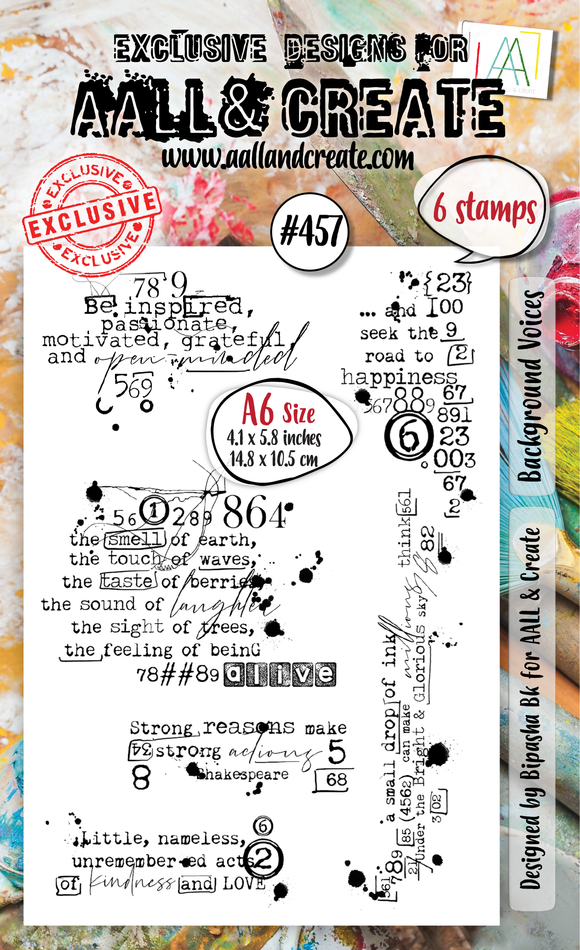 EXCLUSIVE DESIGNS FOR
AALL
AALL & CREATE
www.aallandcreate.com
EXCLUSIVE
EXCLUSIVE
EXCLUSIVE
#457
6 stamps
78 9
Be inspired,
passionate,
motivated, grateful,
and open-minded
569
A6 Size
4.1 x 5.8 inches
14.8 x 10.5 cm
{23}
... and 100
seek the 9
road to [2]
happiness
67
5678889 891
6 23
003
67
[2
56 1 289 864
the smell of earth,
the touch of waves,
the taste of berries
the sound of laughter
the sight of trees,
the feeling of beinG
78##89 alive
think 561
82
a small drop of ink
789 85 (4562) can make millions
21 Under the Bright & Glorious sky
3 02
561
Strong reasons make
34 strong actions 5
8 Shakespeare 68
6
Little, nameless,
unremember-ed acts 2
of kindness and LOVE
Background Voices
Designed by Bipasha Bk for AALL & Create